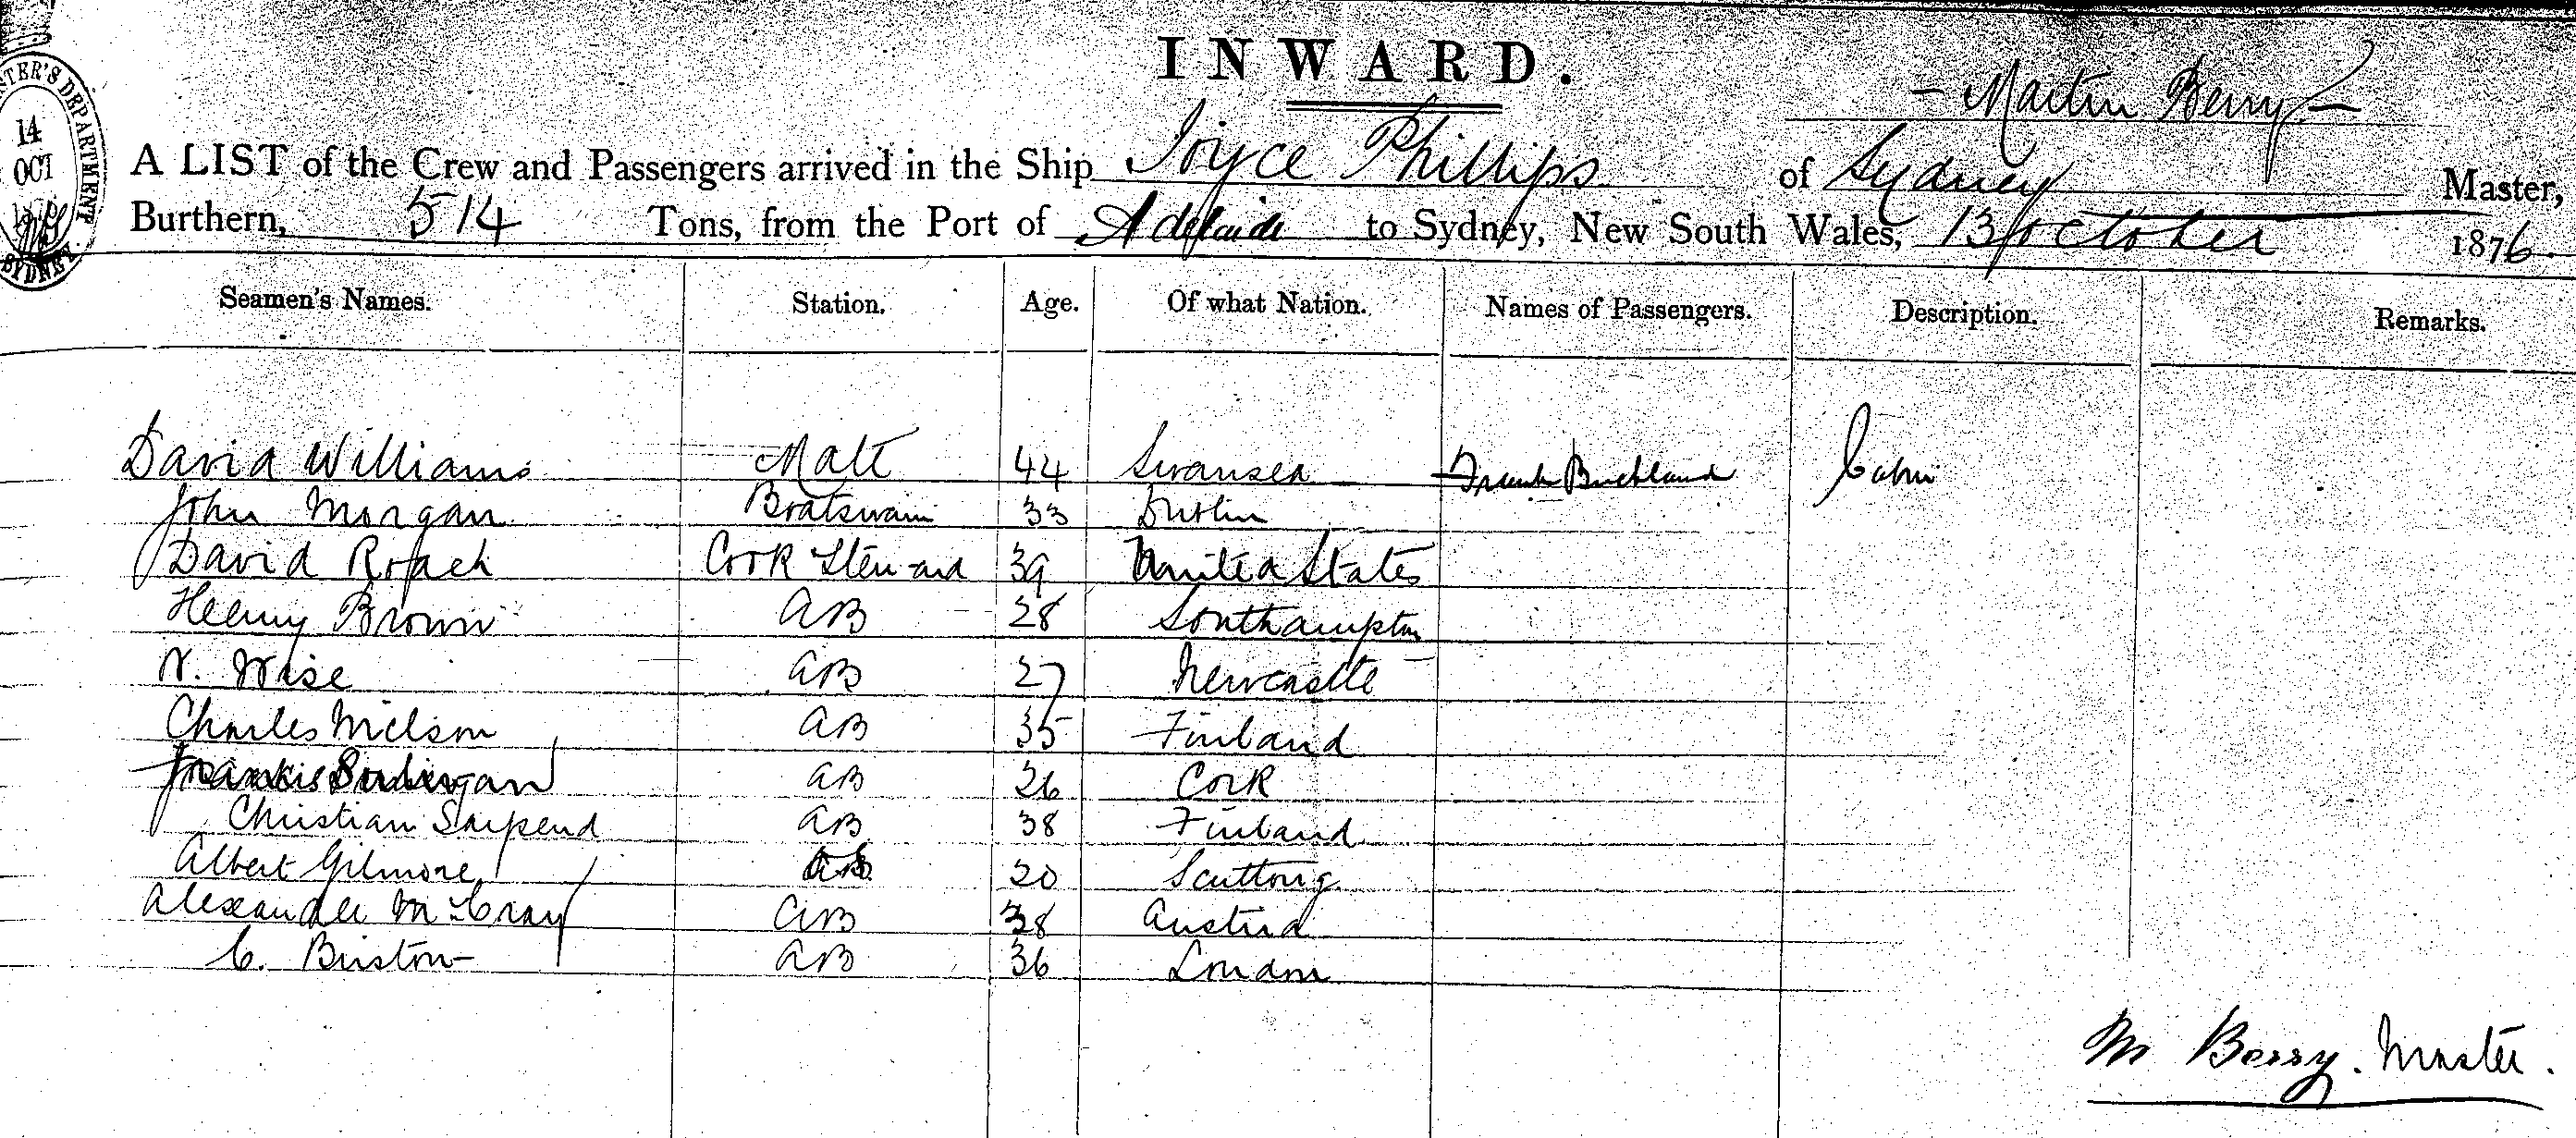 INWARD.
— Martin Berry —
A LIST of the Crew and Passengers arrived in the Ship Joyce Phillips of Sydney Master,
Burthern, 514 Tons, from the Port of Adelaide to Sydney, New South Wales, 13 October 1876.
14
OCT
DEPARTMENT
SYDNEY.
Seamen's Names. Station. Age. Of what Nation. Names of Passengers. Description. Remarks.
David Williams Mate 44 Swansea Frank Buckland Cabin
John Morgan Boatswain 33 Dublin
David Roach Cook Steward 39 United States
Henry Brown AB 28 Southampton
N. Wise AB 27 Newcastle
Charles Nielson AB 35 Finland
AB 26 Cork
Christian AB 38 Finland
Albert Gilmore AB 20
Alexander AB 38 Austria
C. Briston AB 36 London
M Berry. Master.